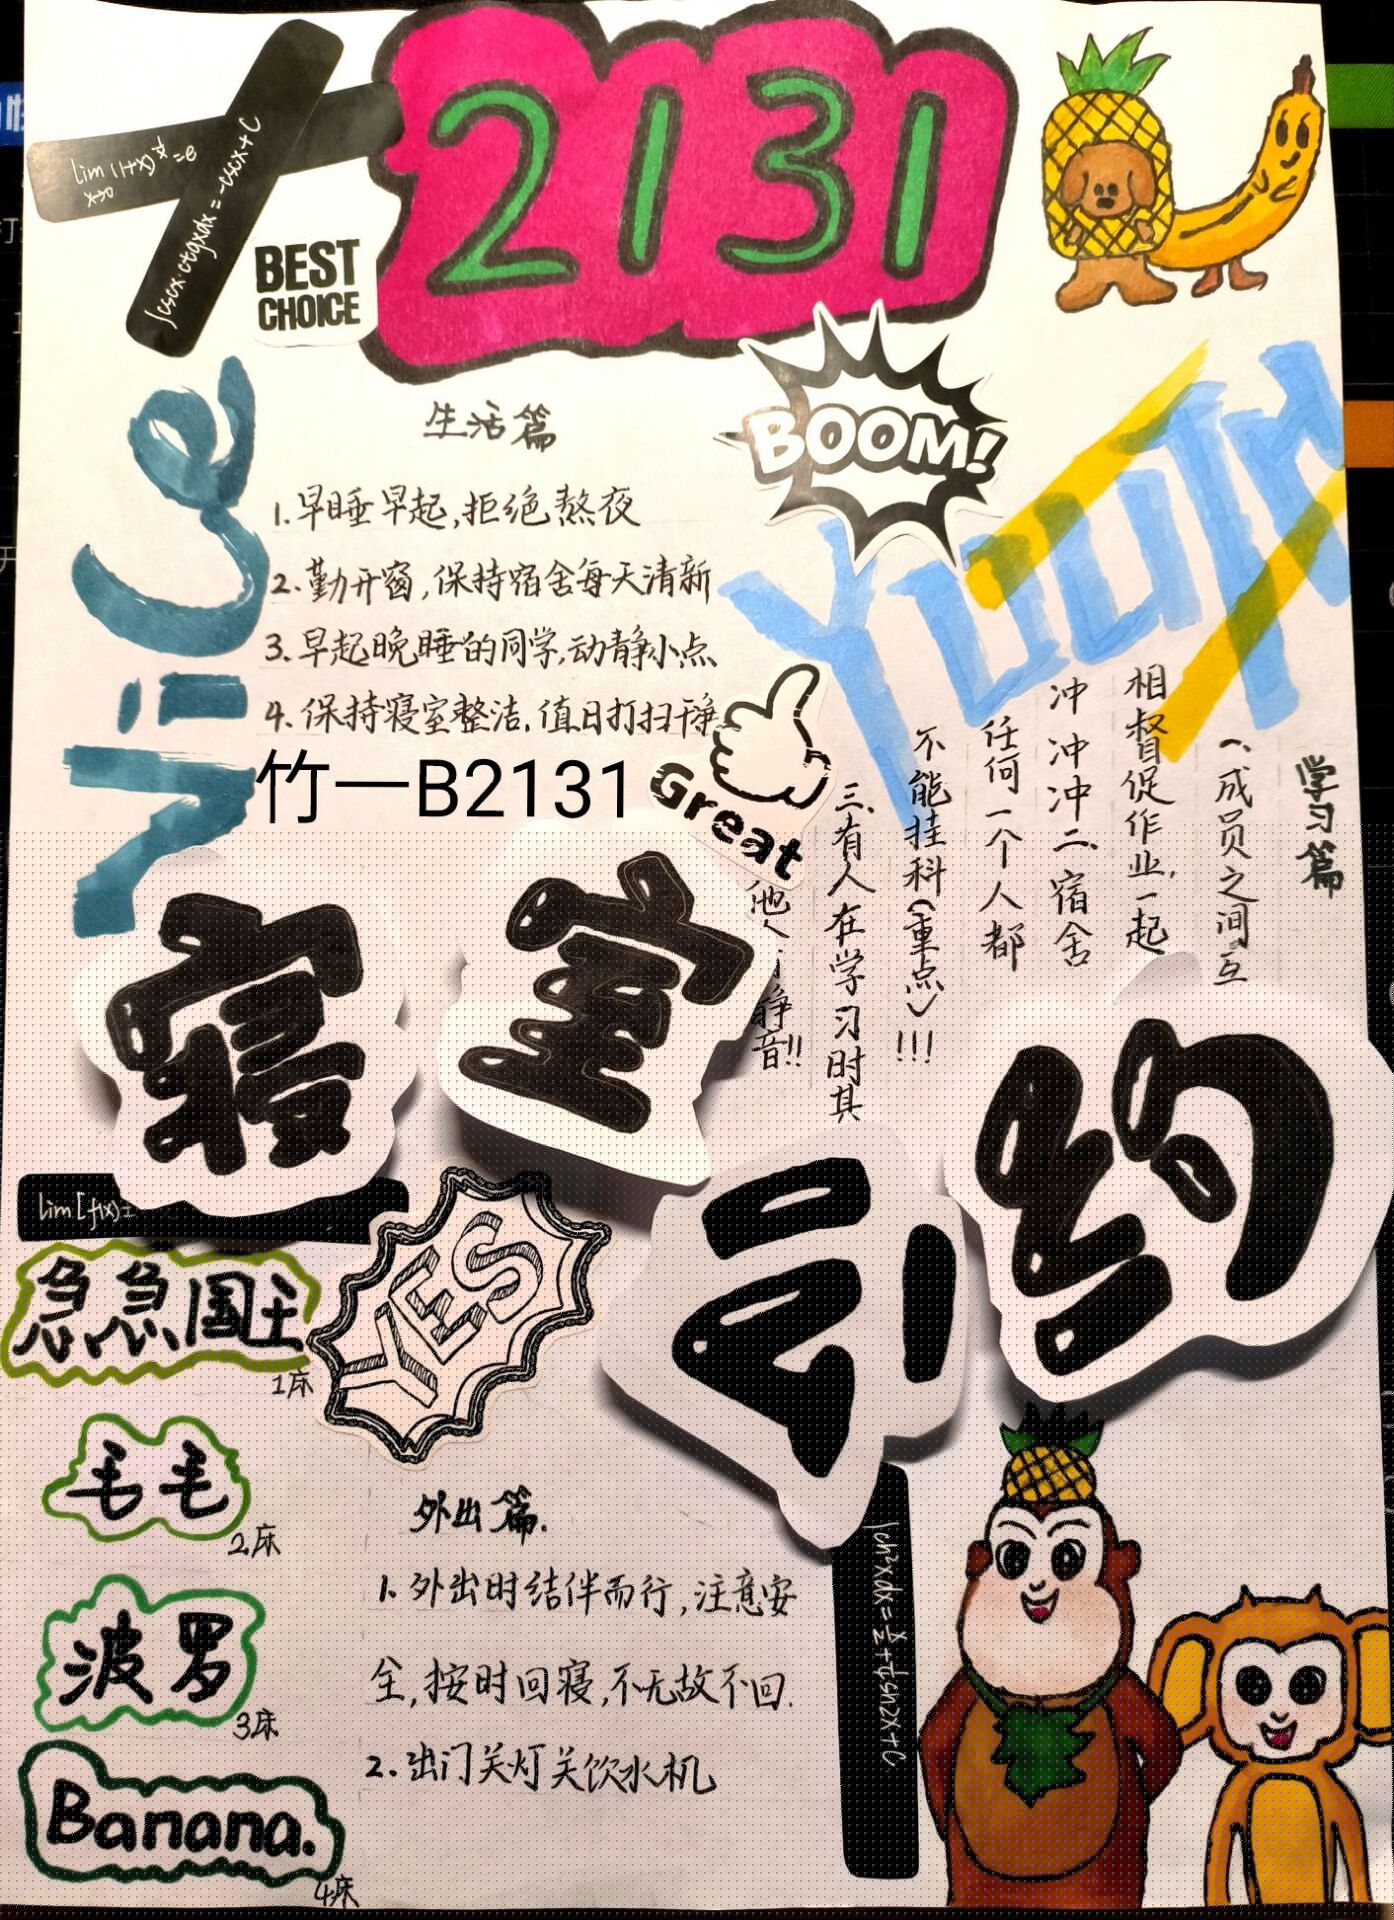 2131
lim(1+x)^{1/x}=e
x→0
∫cscx·ctgxdx=-cscx+C
BEST
CHOICE
Nice
BOOM!
Youth
生活篇
1.早睡早起,拒绝熬夜
2.勤开窗,保持宿舍每天清新
3.早起晚睡的同学,动静小点
4.保持寝室整洁,值日打扫干净
竹一B2131
Great
学习篇
一、成员之间互
相督促作业,一起
冲冲冲二、宿舍
任何一个人都
不能挂科(重点)!!!
三、有人在学习时其
他人 静音!!
寝室公约
lim[f(x)±
急急国王
1床
YES
毛毛
2床
波罗
3床
Banana.
4床
外出篇.
1.外出时结伴而行,注意安
全,按时回寝,不无故不回.
2.出门关灯关饮水机
∫ch²xdx=x/2+¼sh2x+C